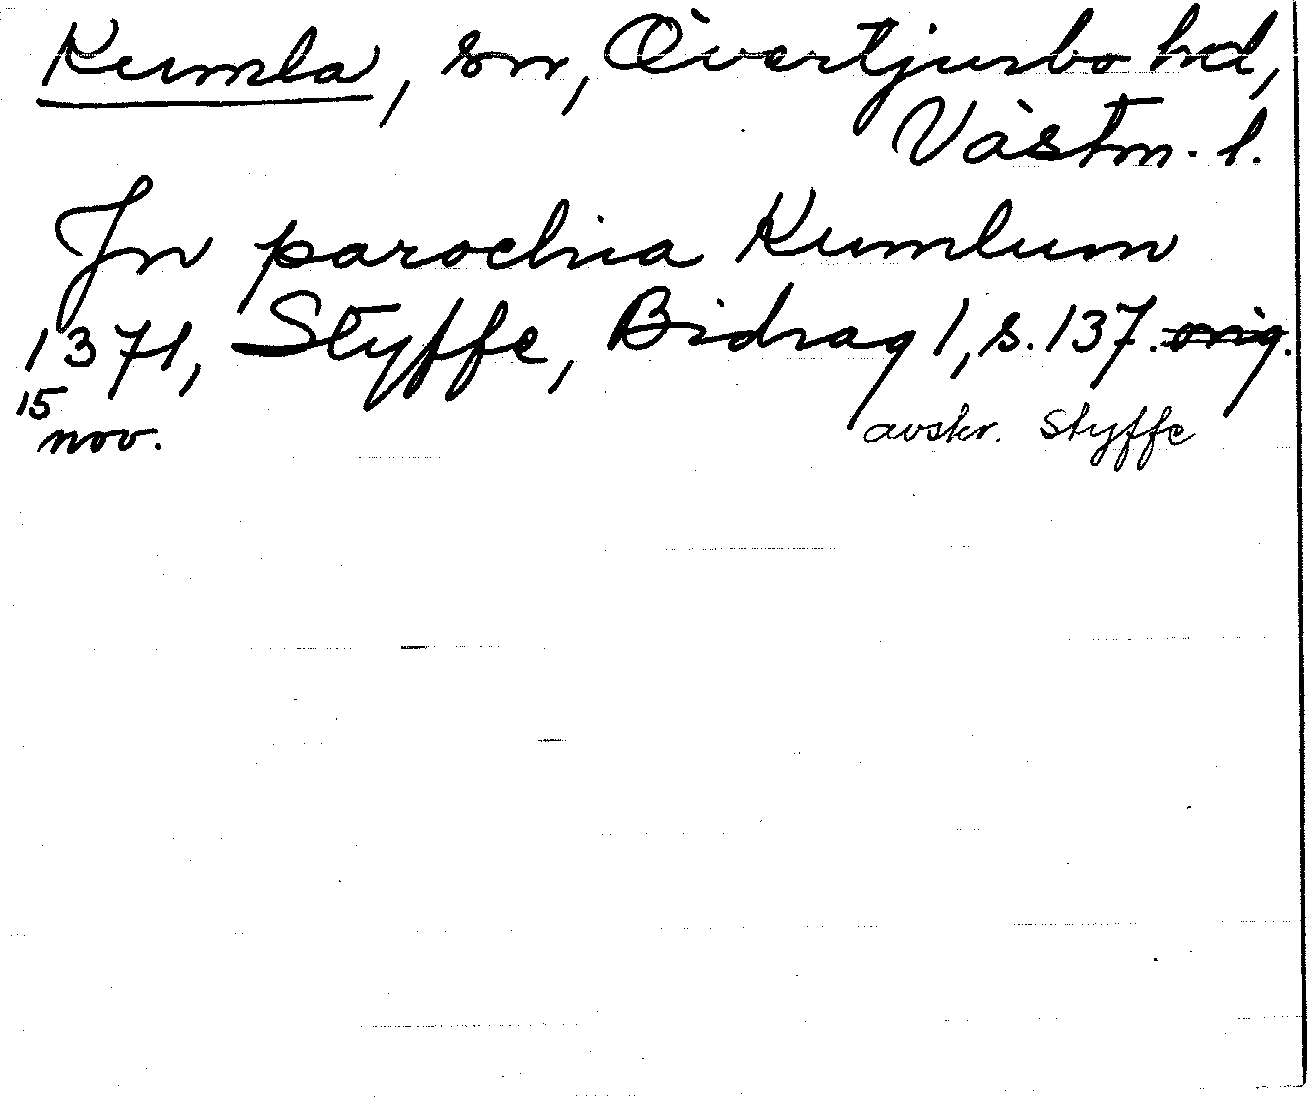 Kumla, sn, Övertjurbo hd,
Västm. l.
In parochia Kumlum
1371, Styffe, Bidrag 1, s. 137. orig.
15
nov.
avskr. Styffe